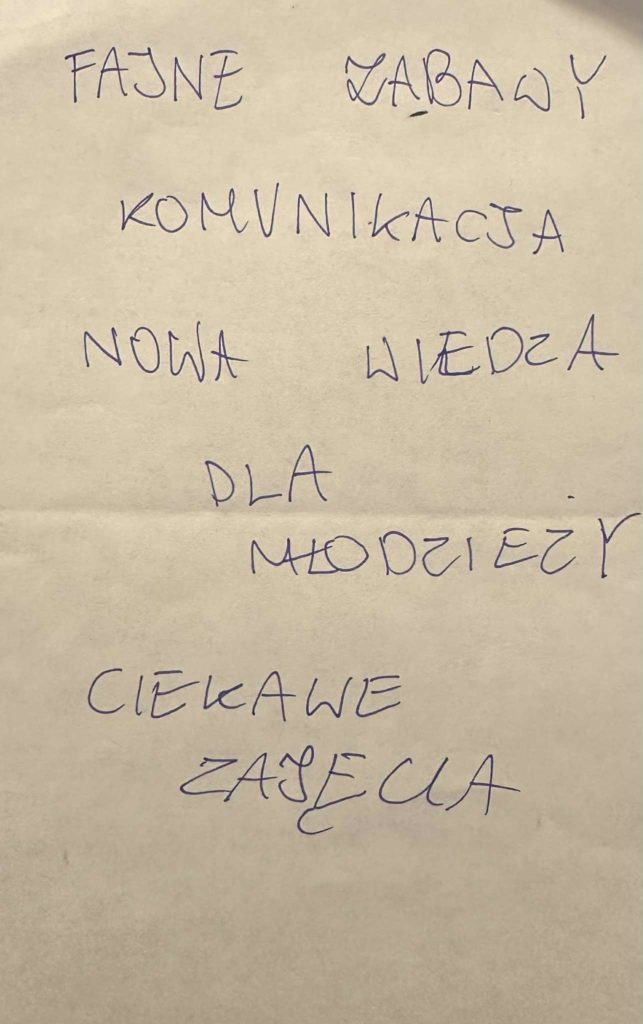 FAJNE ZABAWY
KOMUNIKACJA
NOWA WIEDZA
DLA
MŁODZIEŻY
CIEKAWE
ZAJĘCIA